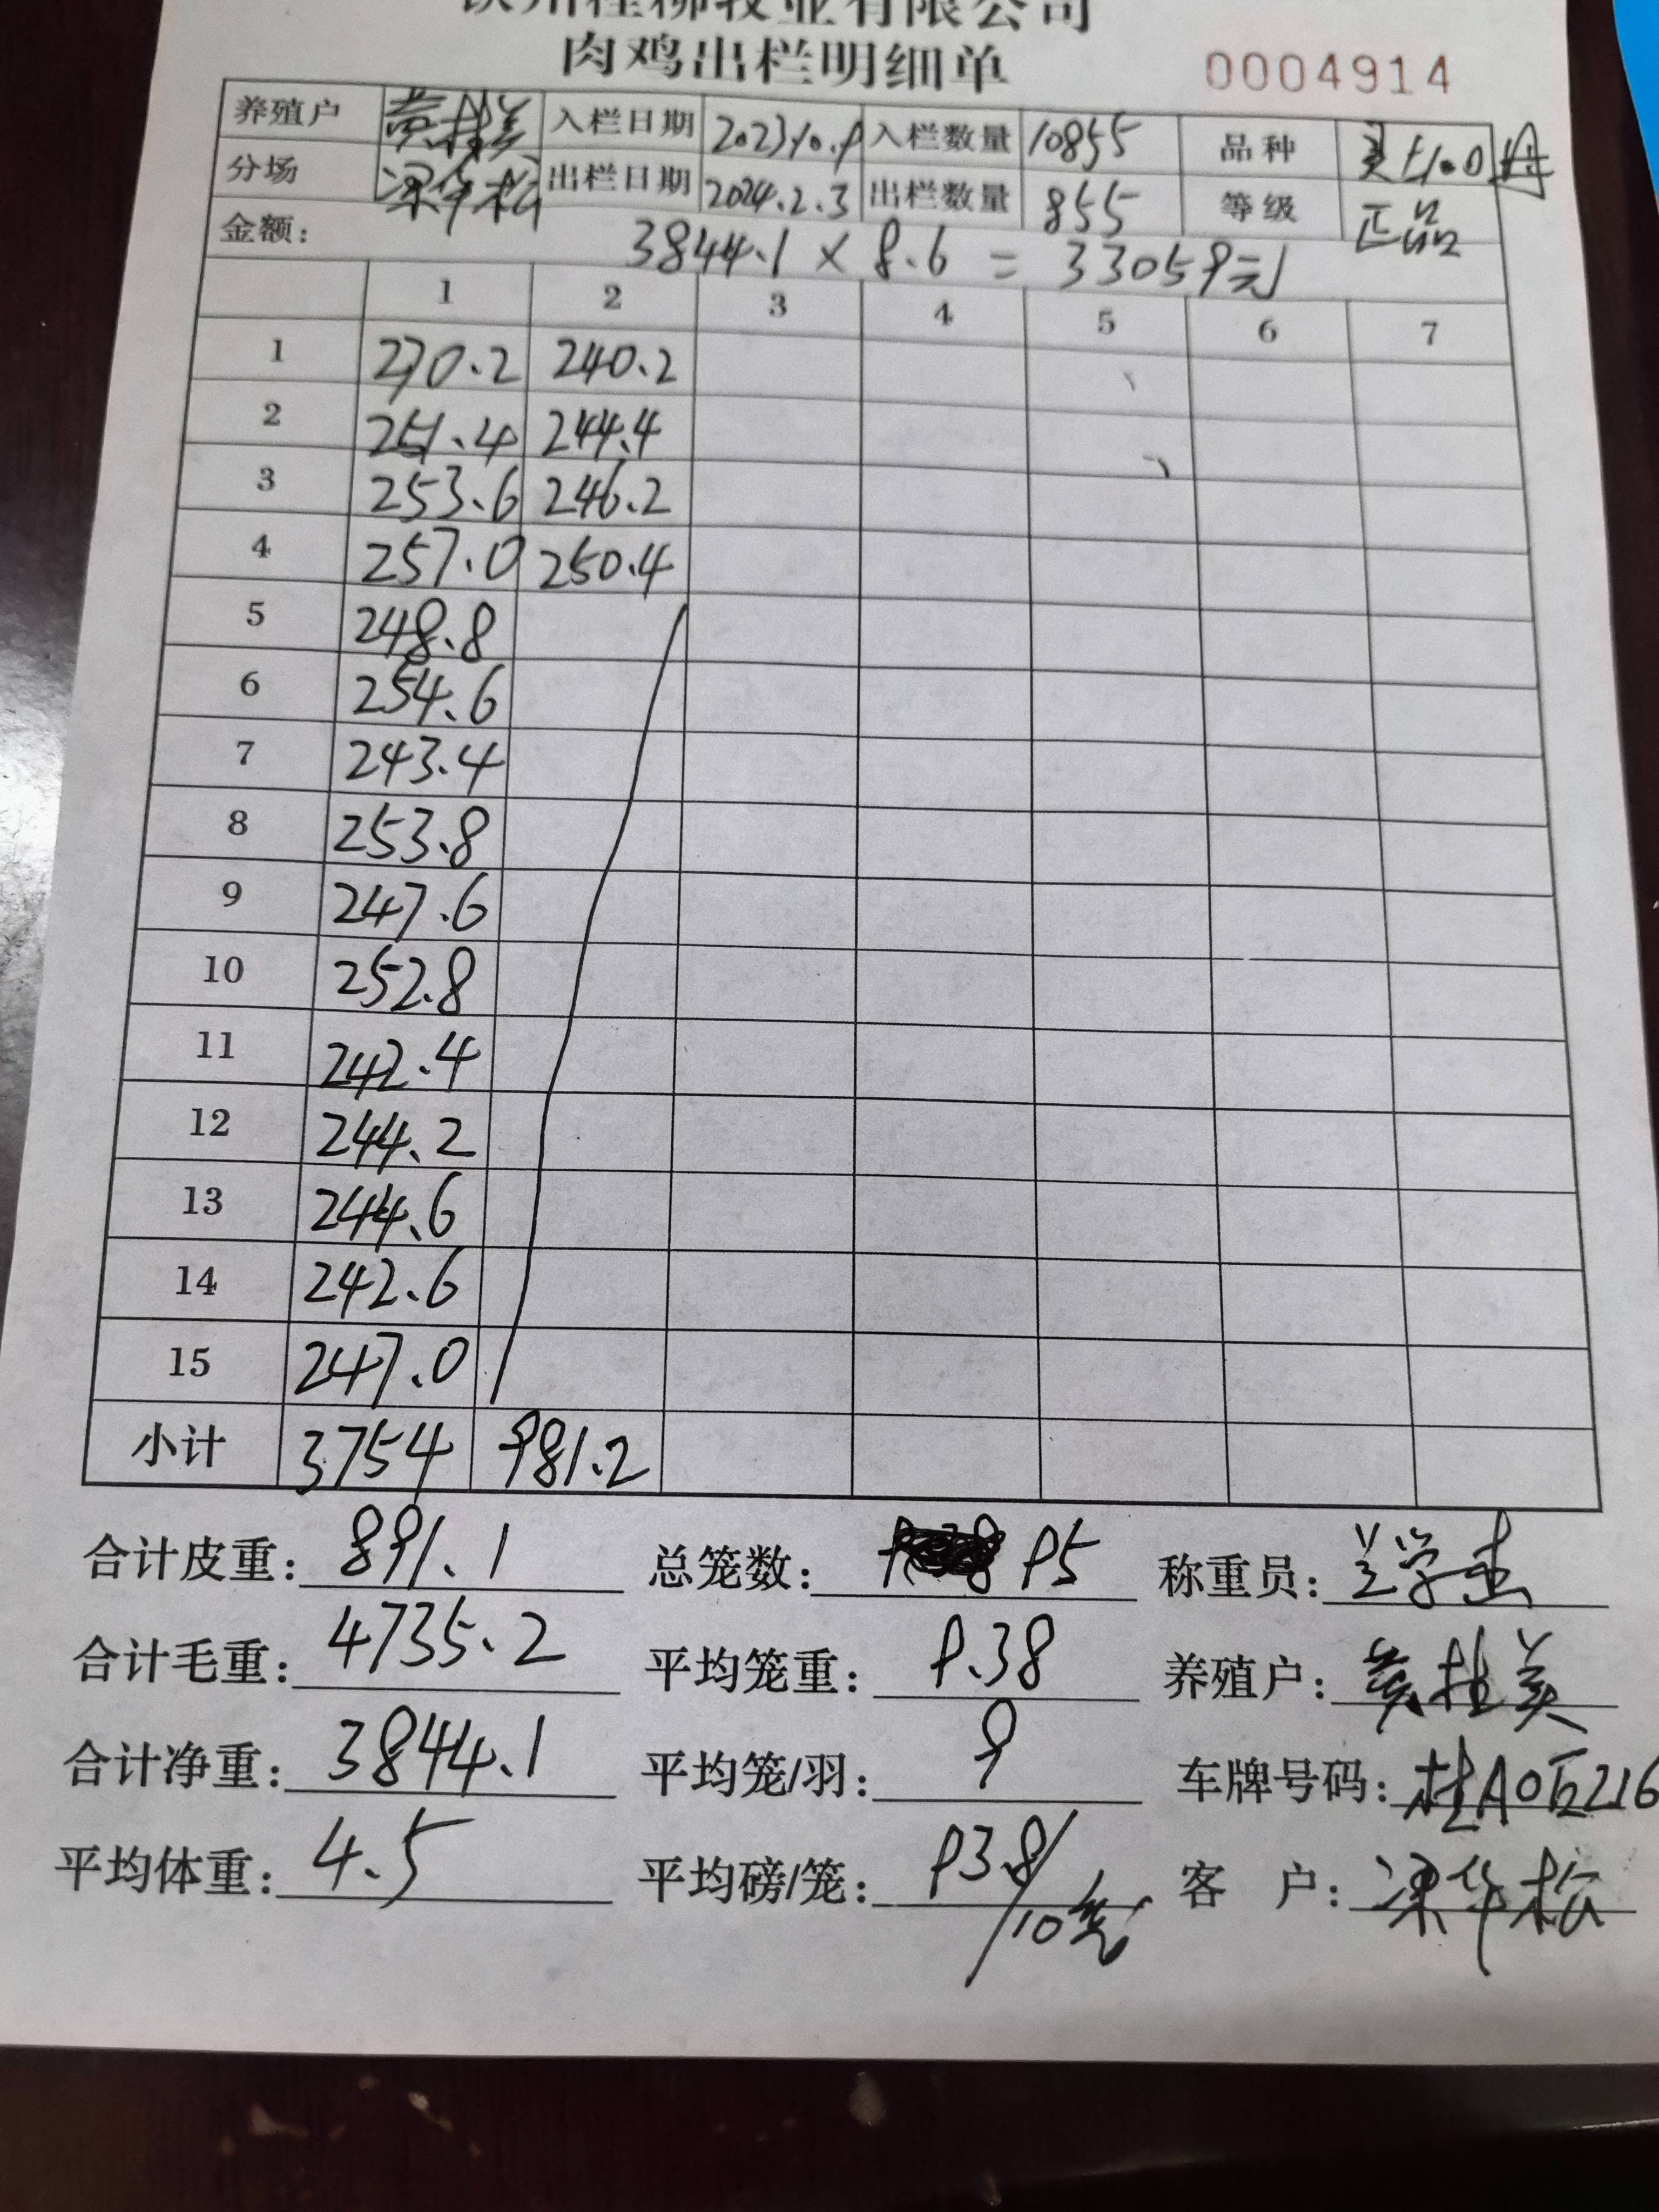 钦州桂柳牧业有限公司
肉鸡出栏明细单 0004914
养殖户 黄桂美 入栏日期 2023.10.9 入栏数量 10855 品种
分场 梁华松 出栏日期 2024.2.3 出栏数量 855 等级 正品
金额: 3844.1 × 8.6 = 33059元
1 2 3 4 5 6 7
1 270.2 240.2
2 251.4 244.4
3 253.6 246.2
4 257.0 250.4
5 248.8
6 254.6
7 243.4
8 253.8
9 247.6
10 252.8
11 242.4
12 244.2
13 244.6
14 242.6
15 247.0
小计 3754 981.2
合计皮重: 891.1 总笼数: 95 称重员:
合计毛重: 4735.2 平均笼重: 9.38 养殖户: 黄桂美
合计净重: 3844.1 平均笼/羽: 9 车牌号码:
平均体重: 4.5 平均磅/笼: 93.8/10笼 客 户: 梁华松